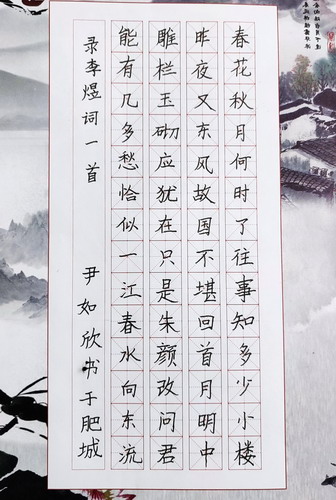 春花秋月何时了往事知多少小楼
昨夜又东风故国不堪回首月明中
雕栏玉砌应犹在只是朱颜改问君
能有几多愁恰似一江春水向东流
录李煜词一首 尹如欣书于肥城